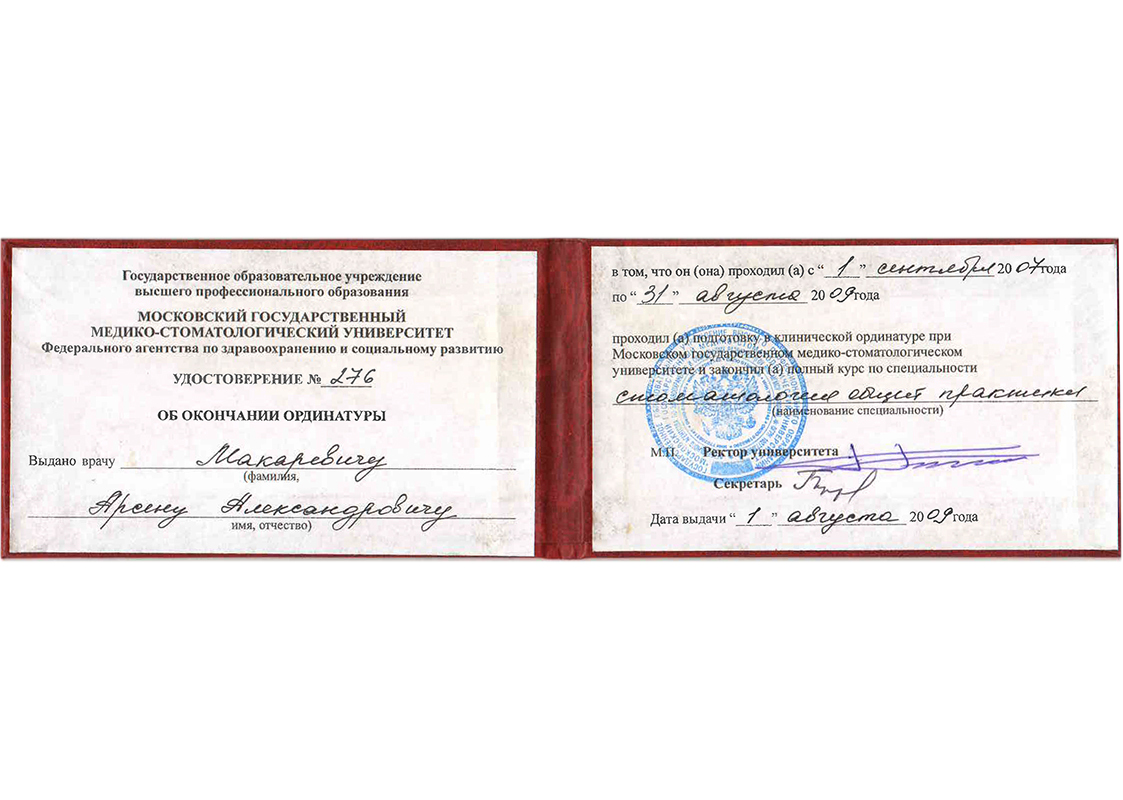 Государственное образовательное учреждение
высшего профессионального образования
МОСКОВСКИЙ ГОСУДАРСТВЕННЫЙ
МЕДИКО-СТОМАТОЛОГИЧЕСКИЙ УНИВЕРСИТЕТ
Федерального агентства по здравоохранению и социальному развитию
УДОСТОВЕРЕНИЕ № 276
ОБ ОКОНЧАНИИ ОРДИНАТУРЫ
Выдано врачу Макаревичу
(фамилия,
Арсену Александровичу
имя, отчество)
в том, что он (она) проходил (а) с “ 1 ” сентября 2007 года
по “ 31 ” августа 2009 года
проходил (а) подготовку в клинической ординатуре при
Московском государственном медико-стоматологическом
университете и закончил (а) полный курс по специальности
стоматология общей практики
(наименование специальности)
М.П. Ректор университета
Секретарь
Дата выдачи “ 1 ” августа 2009 года